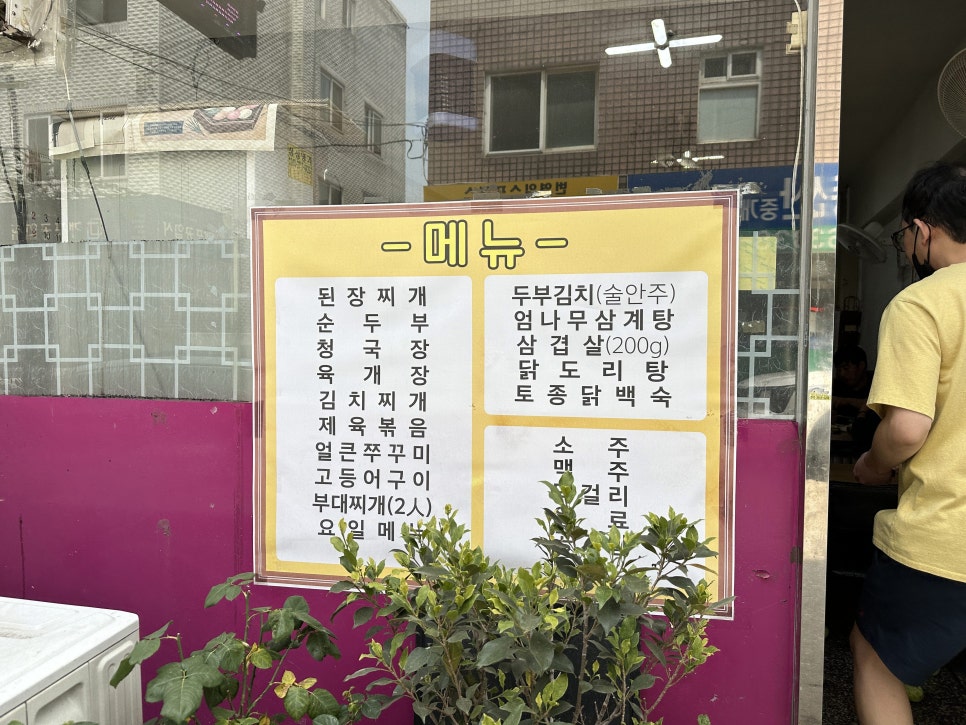 - 메뉴 -
된장찌개
순두부
청국장
육개장
김치찌개
제육볶음
얼큰쭈꾸미
고등어구이
부대찌개(2人)
요일메뉴
두부김치(술안주)
엄나무삼계탕
삼겹살(200g)
닭도리탕
토종닭백숙
소주
맥주
걸리
료